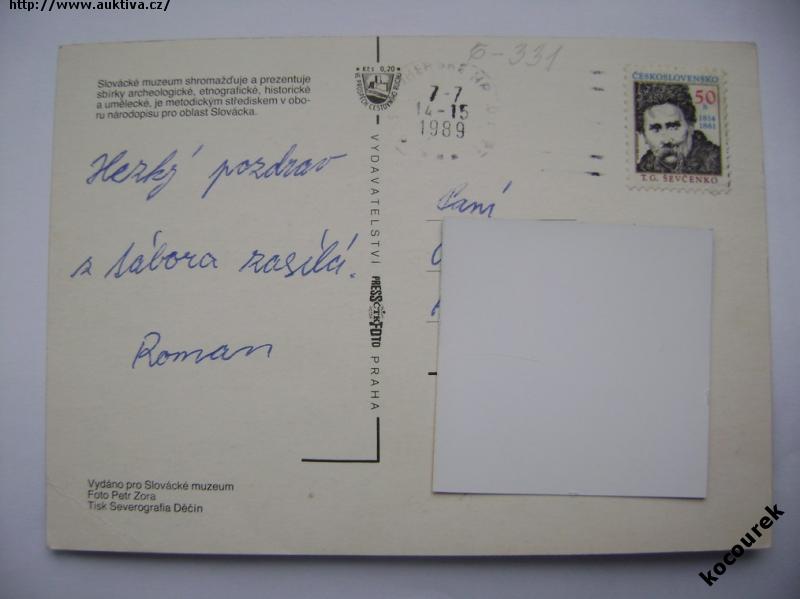 http://www.auktiva.cz/
Б-331
Slovácké muzeum shromažďuje a prezentuje
sbírky archeologické, etnografické, historické
a umělecké, je metodickým střediskem v obo-
ru národopisu pro oblast Slovácka.
Kčs 0,20
VE PROSPĚCH CESTOVNÍHO RUCHU
7-7
14-15
1989
ČESKOSLOVENSKO
50
h
1814
1861
T. G. ŠEVČENKO
Hezký pozdrav
z tábora zasílá.
Roman
Paní
VYDAVATELSTVÍ PRESSFOTO PRAHA
ČTK
Vydáno pro Slovácké muzeum
Foto Petr Zora
Tisk Severografia Děčín
kocourek